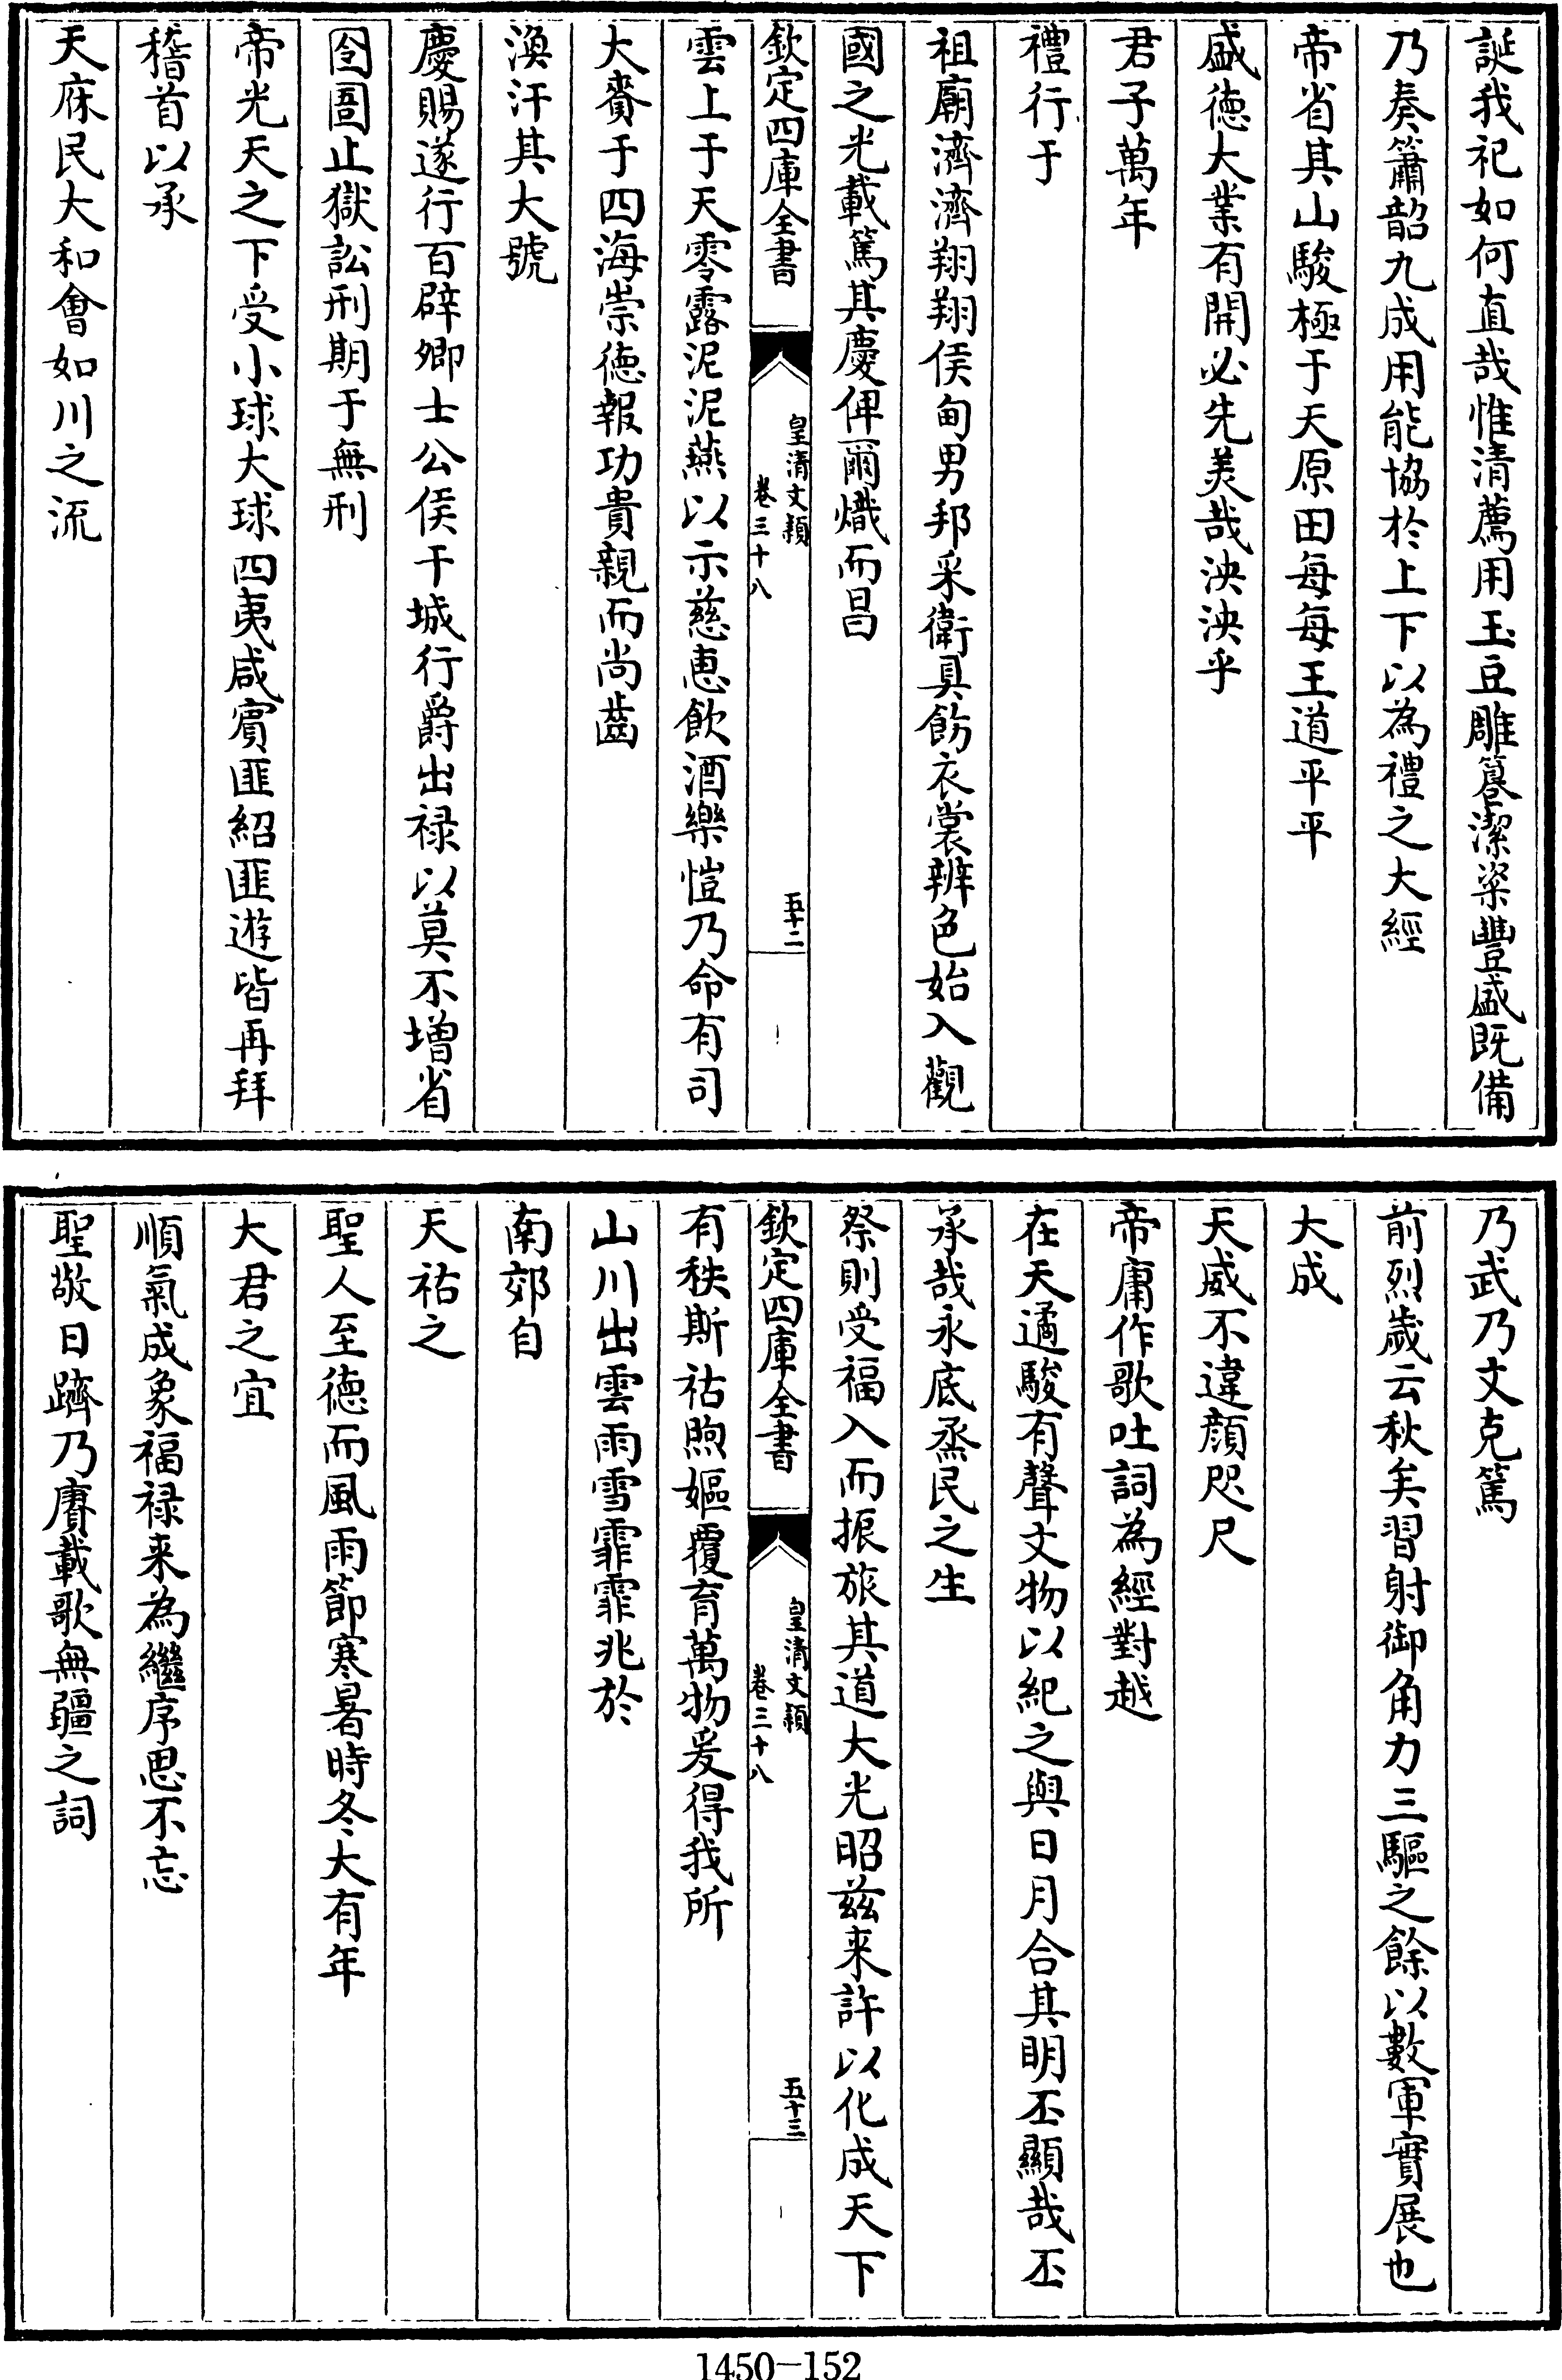 誕我祀如何直哉惟清薦用玉豆雕簋潔粢豐盛既備
乃奏簫韶九成用能協於上下以為禮之大經
帝省其山駿極于天原田每每王道平平
盛徳大業有開必先美哉泱泱乎
君子萬年
禮行于
祖廟濟濟翔翔侯甸男邦采衛具飭衣裳辨色始入觀
國之光載篤其慶俾爾熾而昌
欽定四庫全書
皇清文頴
卷三十八
五十二
雲上于天零露泥泥燕以示慈惠飲酒樂愷乃命有司
大賚于四海崇徳報功貴親而尚齒
渙汗其大號
慶賜遂行百辟卿士公侯干城行爵出禄以莫不增省
囹圄止獄訟刑期于無刑
帝光天之下受小球大球四夷咸賓匪紹匪遊皆再拜
稽首以承
天庥民大和會如川之流
乃武乃文克篤
前烈歲云秋矣習射御角力三驅之餘以數軍實展也
大成
天威不違顔咫尺
帝庸作歌吐詞為經對越
在天遹駿有聲文物以紀之與日月合其明丕顯哉丕
承哉永底烝民之生
祭則受福入而振旅其道大光昭兹来許以化成天下
欽定四庫全書
皇清文頴
卷三十八
五十三
有秩斯祜煦嫗覆育萬物爰得我所
山川出雲雨雪霏霏兆於
南郊自
天祐之
聖人至徳而風雨節寒暑時冬大有年
大君之宜
順氣成象福禄来為繼序思不忘
聖敬日躋乃賡載歌無疆之詞
1450—152